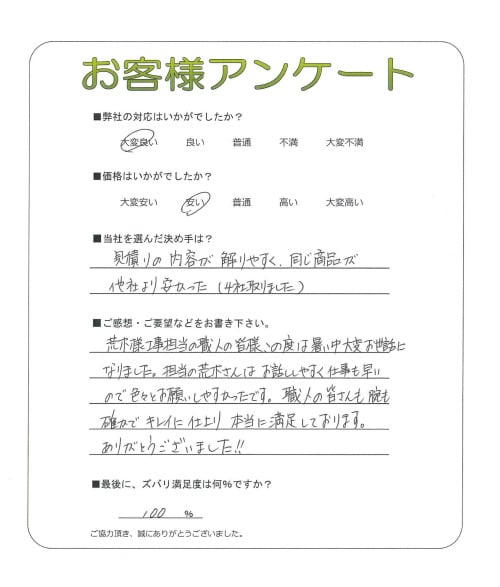 お客様アンケート
■弊社の対応はいかがでしたか？
大変良い 良い 普通 不満 大変不満
■価格はいかがでしたか？
大変安い 安い 普通 高い 大変高い
■当社を選んだ決め手は？
見積りの内容が解りやすく、同じ商品が
他社より安かった（4社取りました）
■ご感想・ご要望などをお書き下さい。
荒木様、工事担当の職人の皆様、この度は暑い中大変お世話に
なりました。担当の荒木さんはお話しやすく仕事も早い
ので色々とお願いしやすかったです。職人の皆さんも腕も
確かでキレイに仕上り本当に満足しております。
ありがとうございました!!
■最後に、ズバリ満足度は何％ですか？
100 ％
ご協力頂き、誠にありがとうございました。